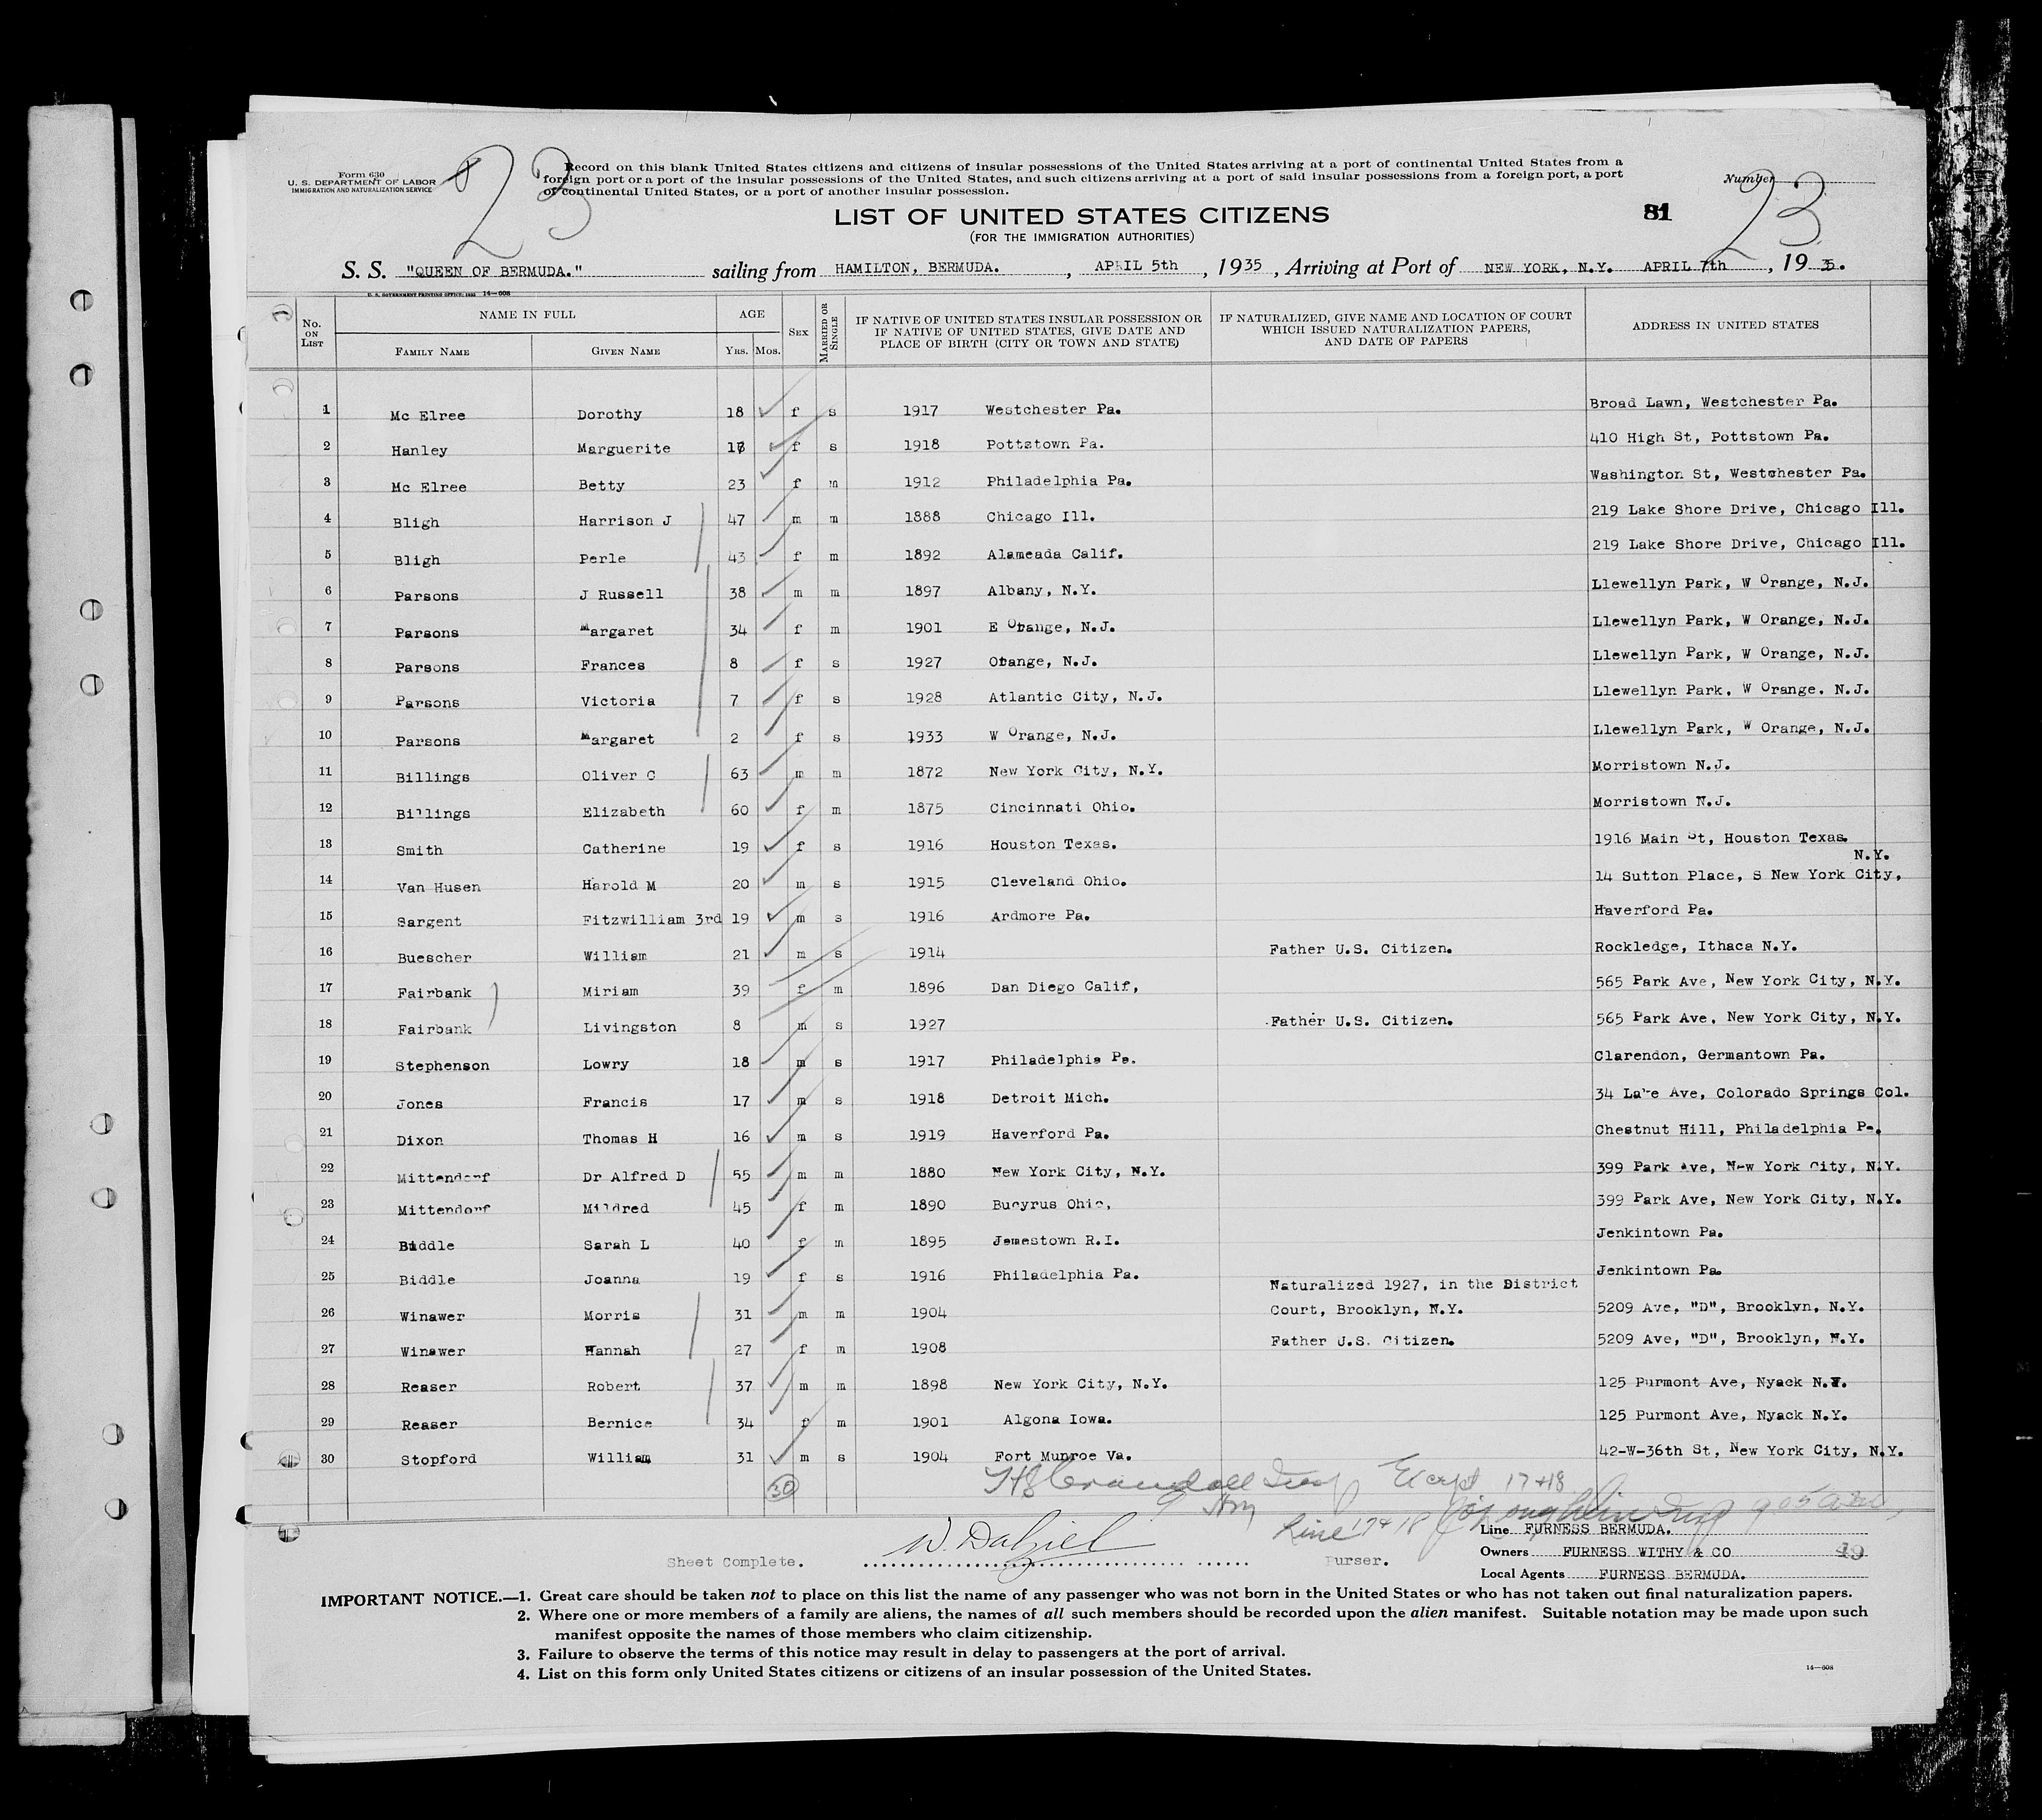 Form 630
U. S. DEPARTMENT OF LABOR
IMMIGRATION AND NATURALIZATION SERVICE
23
Record on this blank United States citizens and citizens of insular possessions of the United States arriving at a port of continental United States from a
foreign port or a port of the insular possessions of the United States, and such citizens arriving at a port of said insular possessions from a foreign port, a port
of continental United States, or a port of another insular possession.
Number
23
LIST OF UNITED STATES CITIZENS
81
(FOR THE IMMIGRATION AUTHORITIES)
S. S. "QUEEN OF BERMUDA." sailing from HAMILTON, BERMUDA. , APRIL 5th , 1935 , Arriving at Port of NEW YORK, N.Y. APRIL 7th , 19 35.
U. S. GOVERNMENT PRINTING OFFICE: 14—608
No. ON LIST NAME IN FULL AGE SEX MARRIED OR SINGLE IF NATIVE OF UNITED STATES INSULAR POSSESSION OR IF NATIVE OF UNITED STATES, GIVE DATE AND PLACE OF BIRTH (CITY OR TOWN AND STATE) IF NATURALIZED, GIVE NAME AND LOCATION OF COURT WHICH ISSUED NATURALIZATION PAPERS, AND DATE OF PAPERS ADDRESS IN UNITED STATES
FAMILY NAME GIVEN NAME YRS. MOS.
1 Mc Elree Dorothy 18 f s 1917 Westchester Pa. Broad Lawn, Westchester Pa.
2 Hanley Marguerite f s 1918 Pottstown Pa. 410 High St, Pottstown Pa.
3 Mc Elree Betty 23 f m 1912 Philadelphia Pa. Washington St, Westchester Pa.
4 Bligh Harrison J 47 m m 1888 Chicago Ill. 219 Lake Shore Drive, Chicago Ill.
5 Bligh Perle 43 f m 1892 Alameada Calif. 219 Lake Shore Drive, Chicago Ill.
6 Parsons J Russell 38 m m 1897 Albany, N.Y. Llewellyn Park, W Orange, N.J.
7 Parsons Margaret 34 f m 1901 E Orange, N.J. Llewellyn Park, W Orange, N.J.
8 Parsons Frances 8 f s 1927 Orange, N.J. Llewellyn Park, W Orange, N.J.
9 Parsons Victoria 7 f s 1928 Atlantic City, N.J. Llewellyn Park, W Orange. N.J.
10 Parsons Margaret 2 f s 1933 W Orange, N.J. Llewellyn Park, W Orange, N.J.
11 Billings Oliver C 63 m m 1872 New York City, N.Y. Morristown N.J.
12 Billings Elizabeth 60 f m 1875 Cincinnati Ohio. Morristown N.J.
13 Smith Catherine 19 f s 1916 Houston Texas. 1916 Main St, Houston Texas.
14 Van Husen Harold M 20 m s 1915 Cleveland Ohio. 14 Sutton Place, S New York City, N.Y.
15 Sargent Fitzwilliam 3rd 19 m s 1916 Ardmore Pa. Haverford Pa.
16 Buescher William 21 m s 1914 Father U.S. Citizen. Rockledge, Ithaca N.Y.
17 Fairbank Miriam 39 f m 1896 Dan Diego Calif, 565 Park Ave, New York City, N.Y.
18 Fairbank Livingston 8 m s 1927 Father U.S. Citizen. 565 Park Ave, New York City, N.Y.
19 Stephenson Lowry 18 m s 1917 Philadelphia Pa. Clarendon, Germantown Pa.
20 Jones Francis 17 m s 1918 Detroit Mich. 34 Lake Ave, Colorado Springs Col.
21 Dixon Thomas H 16 m s 1919 Haverford Pa. Chestnut Hill, Philadelphia Pa.
22 Mittendorf Dr Alfred D 55 m m 1880 New York City, N.Y. 399 Park Ave, New York City, N.Y.
23 Mittendorf Mildred 45 f m 1890 Bucyrus Ohio, 399 Park Ave, New York City, N.Y.
24 Biddle Sarah L 40 f m 1895 Jamestown R.I. Jenkintown Pa.
25 Biddle Joanna 19 f s 1916 Philadelphia Pa. Jenkintown Pa.
Naturalized 1927, in the District
26 Winawer Morris 31 m m 1904 Court, Brooklyn, N.Y. 5209 Ave, "D", Brooklyn, N.Y.
27 Winawer Hannah 27 f m 1908 Father U.S. Citizen. 5209 Ave, "D", Brooklyn, N.Y.
28 Reaser Robert 37 m m 1898 New York City, N.Y. 125 Purmont Ave, Nyack N.Y.
29 Reaser Bernice 34 f m 1901 Algona Iowa. 125 Purmont Ave, Nyack N.Y.
30 Stopford William 31 m s 1904 Fort Munroe Va. 42-W-36th St, New York City, N.Y.
30 Crandall Insp Except 17+18
Line 17+18 Insp 905
Line FURNESS BERMUDA.
Sheet Complete. W. Dalziel Purser.
Owners FURNESS WITHY & CO 49
Local Agents FURNESS BERMUDA.
IMPORTANT NOTICE.—1. Great care should be taken not to place on this list the name of any passenger who was not born in the United States or who has not taken out final naturalization papers.
2. Where one or more members of a family are aliens, the names of all such members should be recorded upon the alien manifest. Suitable notation may be made upon such
manifest opposite the names of those members who claim citizenship.
3. Failure to observe the terms of this notice may result in delay to passengers at the port of arrival.
4. List on this form only United States citizens or citizens of an insular possession of the United States.
14—608